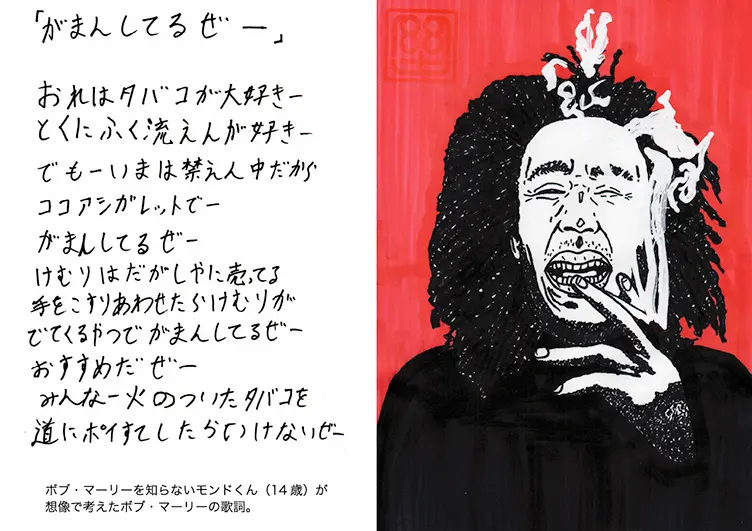 「がまんしてるぜー」
おれはタバコが大好きー
とくにふく流えんが好きー
でもーいまは禁えん中だから
ココアシガレットでー
がまんしてるぜー
けむりはだがしやに売ってる
手をこすりあわせたらけむりが
でてくるやつでがまんしてるぜー
おすすめだぜー
みんなー火のついたタバコを
道にポイすてしたらいけないぜー
ボブ・マーリーを知らないモンドくん（14歳）が
想像で考えたボブ・マーリーの歌詞。